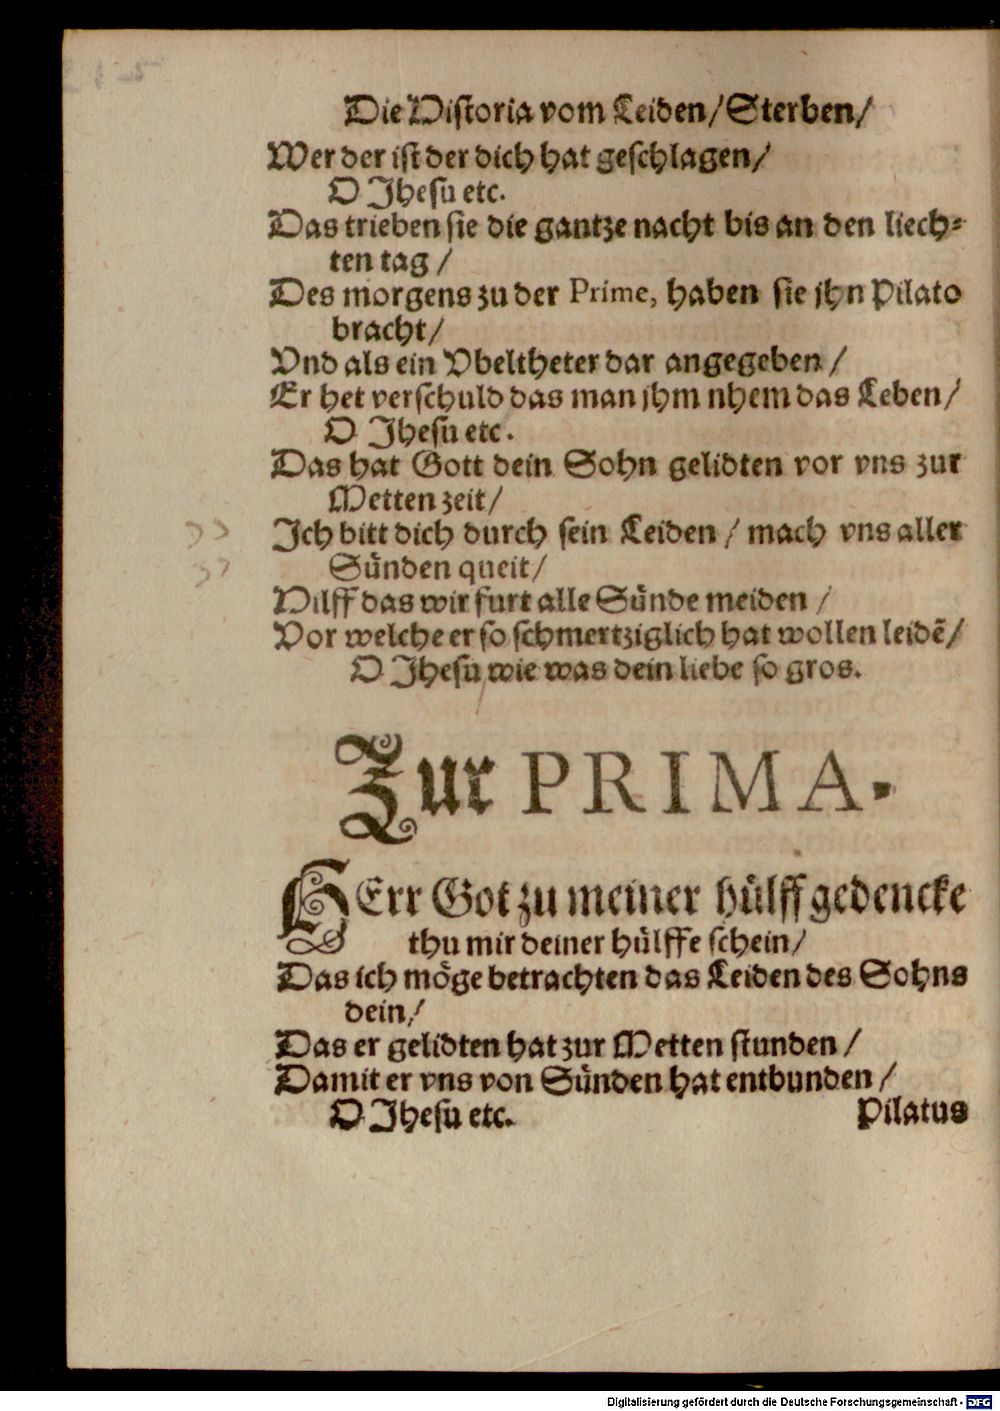 Die Historia vom Leiden/Sterben/
Wer der ist der dich hat geschlagen/
O Jhesu etc.
Das trieben sie die gantze nacht bis an den liech⸗
ten tag /
Des morgens zu der Prime, haben sie jhn Pilato
bracht/
Vnd als ein Vbeltheter dar angegeben /
Er het verschuld das man jhm nhem das Leben/
O Jhesu etc.
Das hat Gott dein Sohn gelidten vor vns zur
Metten zeit/
Ich bitt dich durch sein Leiden / mach vns aller
Sünden queit/
Hilff das wir furt alle Sünde meiden /
Vor welche er so schmertziglich hat wollen leidē/
O Jhesu wie was dein liebe so gros.
Zur PRIMA.
HErr Got zu meiner hülff gedencke
thu mir deiner hülffe schein/
Das ich möge betrachten das Leiden des Sohns
dein/
Das er gelidten hat zur Metten stunden /
Damit er vns von Sünden hat entbunden /
O Jhesu etc. Pilatus
Digitalisierung gefördert durch die Deutsche Forschungsgemeinschaft - DFG